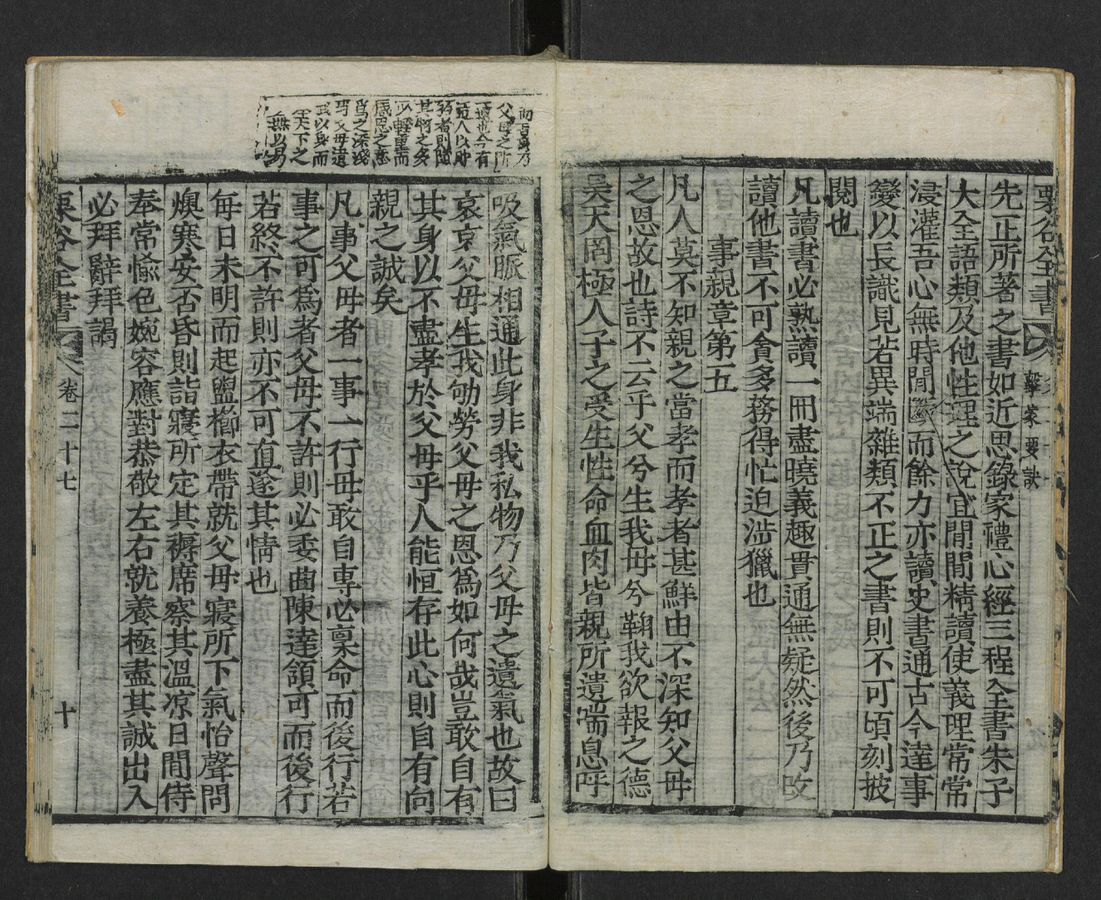 栗谷全書
擊蒙要訣
先正所著之書如近思錄家禮心經二程全書朱子
大全語類及他性理之說宜閒閒精讀使義理常常
浸灌吾心無時閒斷而餘力亦讀史書通古今達事
變以長識見若異端雜類不正之書則不可頃刻披
閱也
凡讀書必熟讀一冊盡曉義趣貫通無疑然後乃改
讀他書不可貪多務得忙迫涉獵也
事親章第五
凡人莫不知親之當孝而孝者甚鮮由不深知父母
之恩故也詩不云乎父兮生我母兮鞠我欲報之德
昊天罔極人子之受生性命血肉皆親所遺喘息呼
父母之所
遺也今有
遺人以財
物者則隨
其物之多
少輕重而
感恩之意
爲之深淺
焉父母遺
我以身而
天下之
無以易
吸氣脈相通此身非我私物乃父母之遺氣也故曰
哀哀父母生我劬勞父母之恩爲如何哉豈敢自有
其身以不盡孝於父母乎人能恒存此心則自有向
親之誠矣
凡事父母者一事一行毋敢自專必稟命而後行若
事之可爲者父母不許則必委曲陳達頷可而後行
若終不許則亦不可直遂其情也
每日未明而起盥櫛衣帶就父母寢所下氣怡聲問
燠寒安否昏則詣寢所定其褥席察其溫凉日閒侍
奉常愉色婉容應對恭敬左右就養極盡其誠出入
必拜辭拜謁
栗谷全書
卷二十七
十